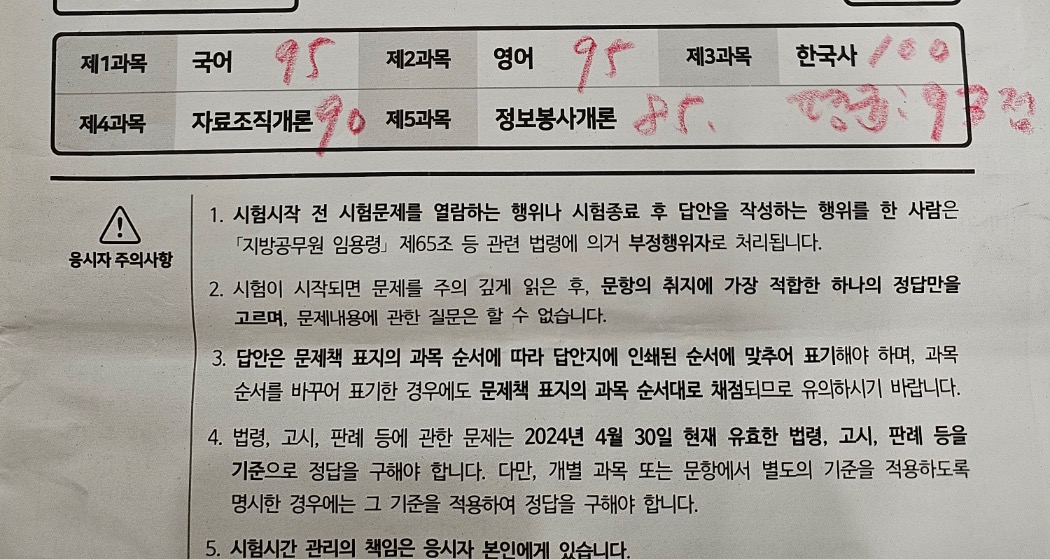 제1과목 국어 95 제2과목 영어 95 제3과목 한국사 100
제4과목 자료조직개론 90 제5과목 정보봉사개론 85. 평균: 93점
응시자 주의사항
1. 시험시작 전 시험문제를 열람하는 행위나 시험종료 후 답안을 작성하는 행위를 한 사람은
「지방공무원 임용령」 제65조 등 관련 법령에 의거 부정행위자로 처리됩니다.
2. 시험이 시작되면 문제를 주의 깊게 읽은 후, 문항의 취지에 가장 적합한 하나의 정답만을
고르며, 문제내용에 관한 질문은 할 수 없습니다.
3. 답안은 문제책 표지의 과목 순서에 따라 답안지에 인쇄된 순서에 맞추어 표기해야 하며, 과목
순서를 바꾸어 표기한 경우에도 문제책 표지의 과목 순서대로 채점되므로 유의하시기 바랍니다.
4. 법령, 고시, 판례 등에 관한 문제는 2024년 4월 30일 현재 유효한 법령, 고시, 판례 등을
기준으로 정답을 구해야 합니다. 다만, 개별 과목 또는 문항에서 별도의 기준을 적용하도록
명시한 경우에는 그 기준을 적용하여 정답을 구해야 합니다.
5. 시험시간 관리의 책임은 응시자 본인에게 있습니다.